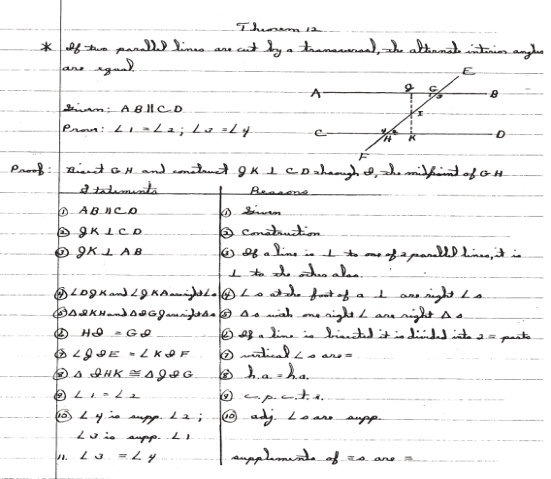 Theorem 12
* If two parallel lines are cut by a transversal, the alternate interior angles
are equal.
E
A J G B
I
C H K D
F
Given: AB || CD
Prove: ∠1 = ∠2; ∠3 = ∠4
Proof: Bisect GH and construct JK ⊥ CD through I, the midpoint of GH
Statements Reasons
① AB || CD ① Given
② JK ⊥ CD ② Construction
③ JK ⊥ AB ③ If a line is ⊥ to one of 2 parallel lines, it is
⊥ to the other also.
④ ④ ∠s at the foot of a ⊥ are right ∠s
⑤ ⑤ △s with one right ∠ are right △s
⑥ HI = GI ⑥ If a line is bisected it is divided into 2 = parts
⑦ vertical ∠s are =
⑧ △ IHK ≅ △ JIG ⑧ h.a. = h.a.
⑨ ∠1 = ∠2 ⑨ c.p.c.t.e.
⑩ ∠4 is supp. ∠2; ⑩ adj. ∠s are supp.
∠3 is supp. ∠1
11. ∠3 = ∠4 supplements of =s are =